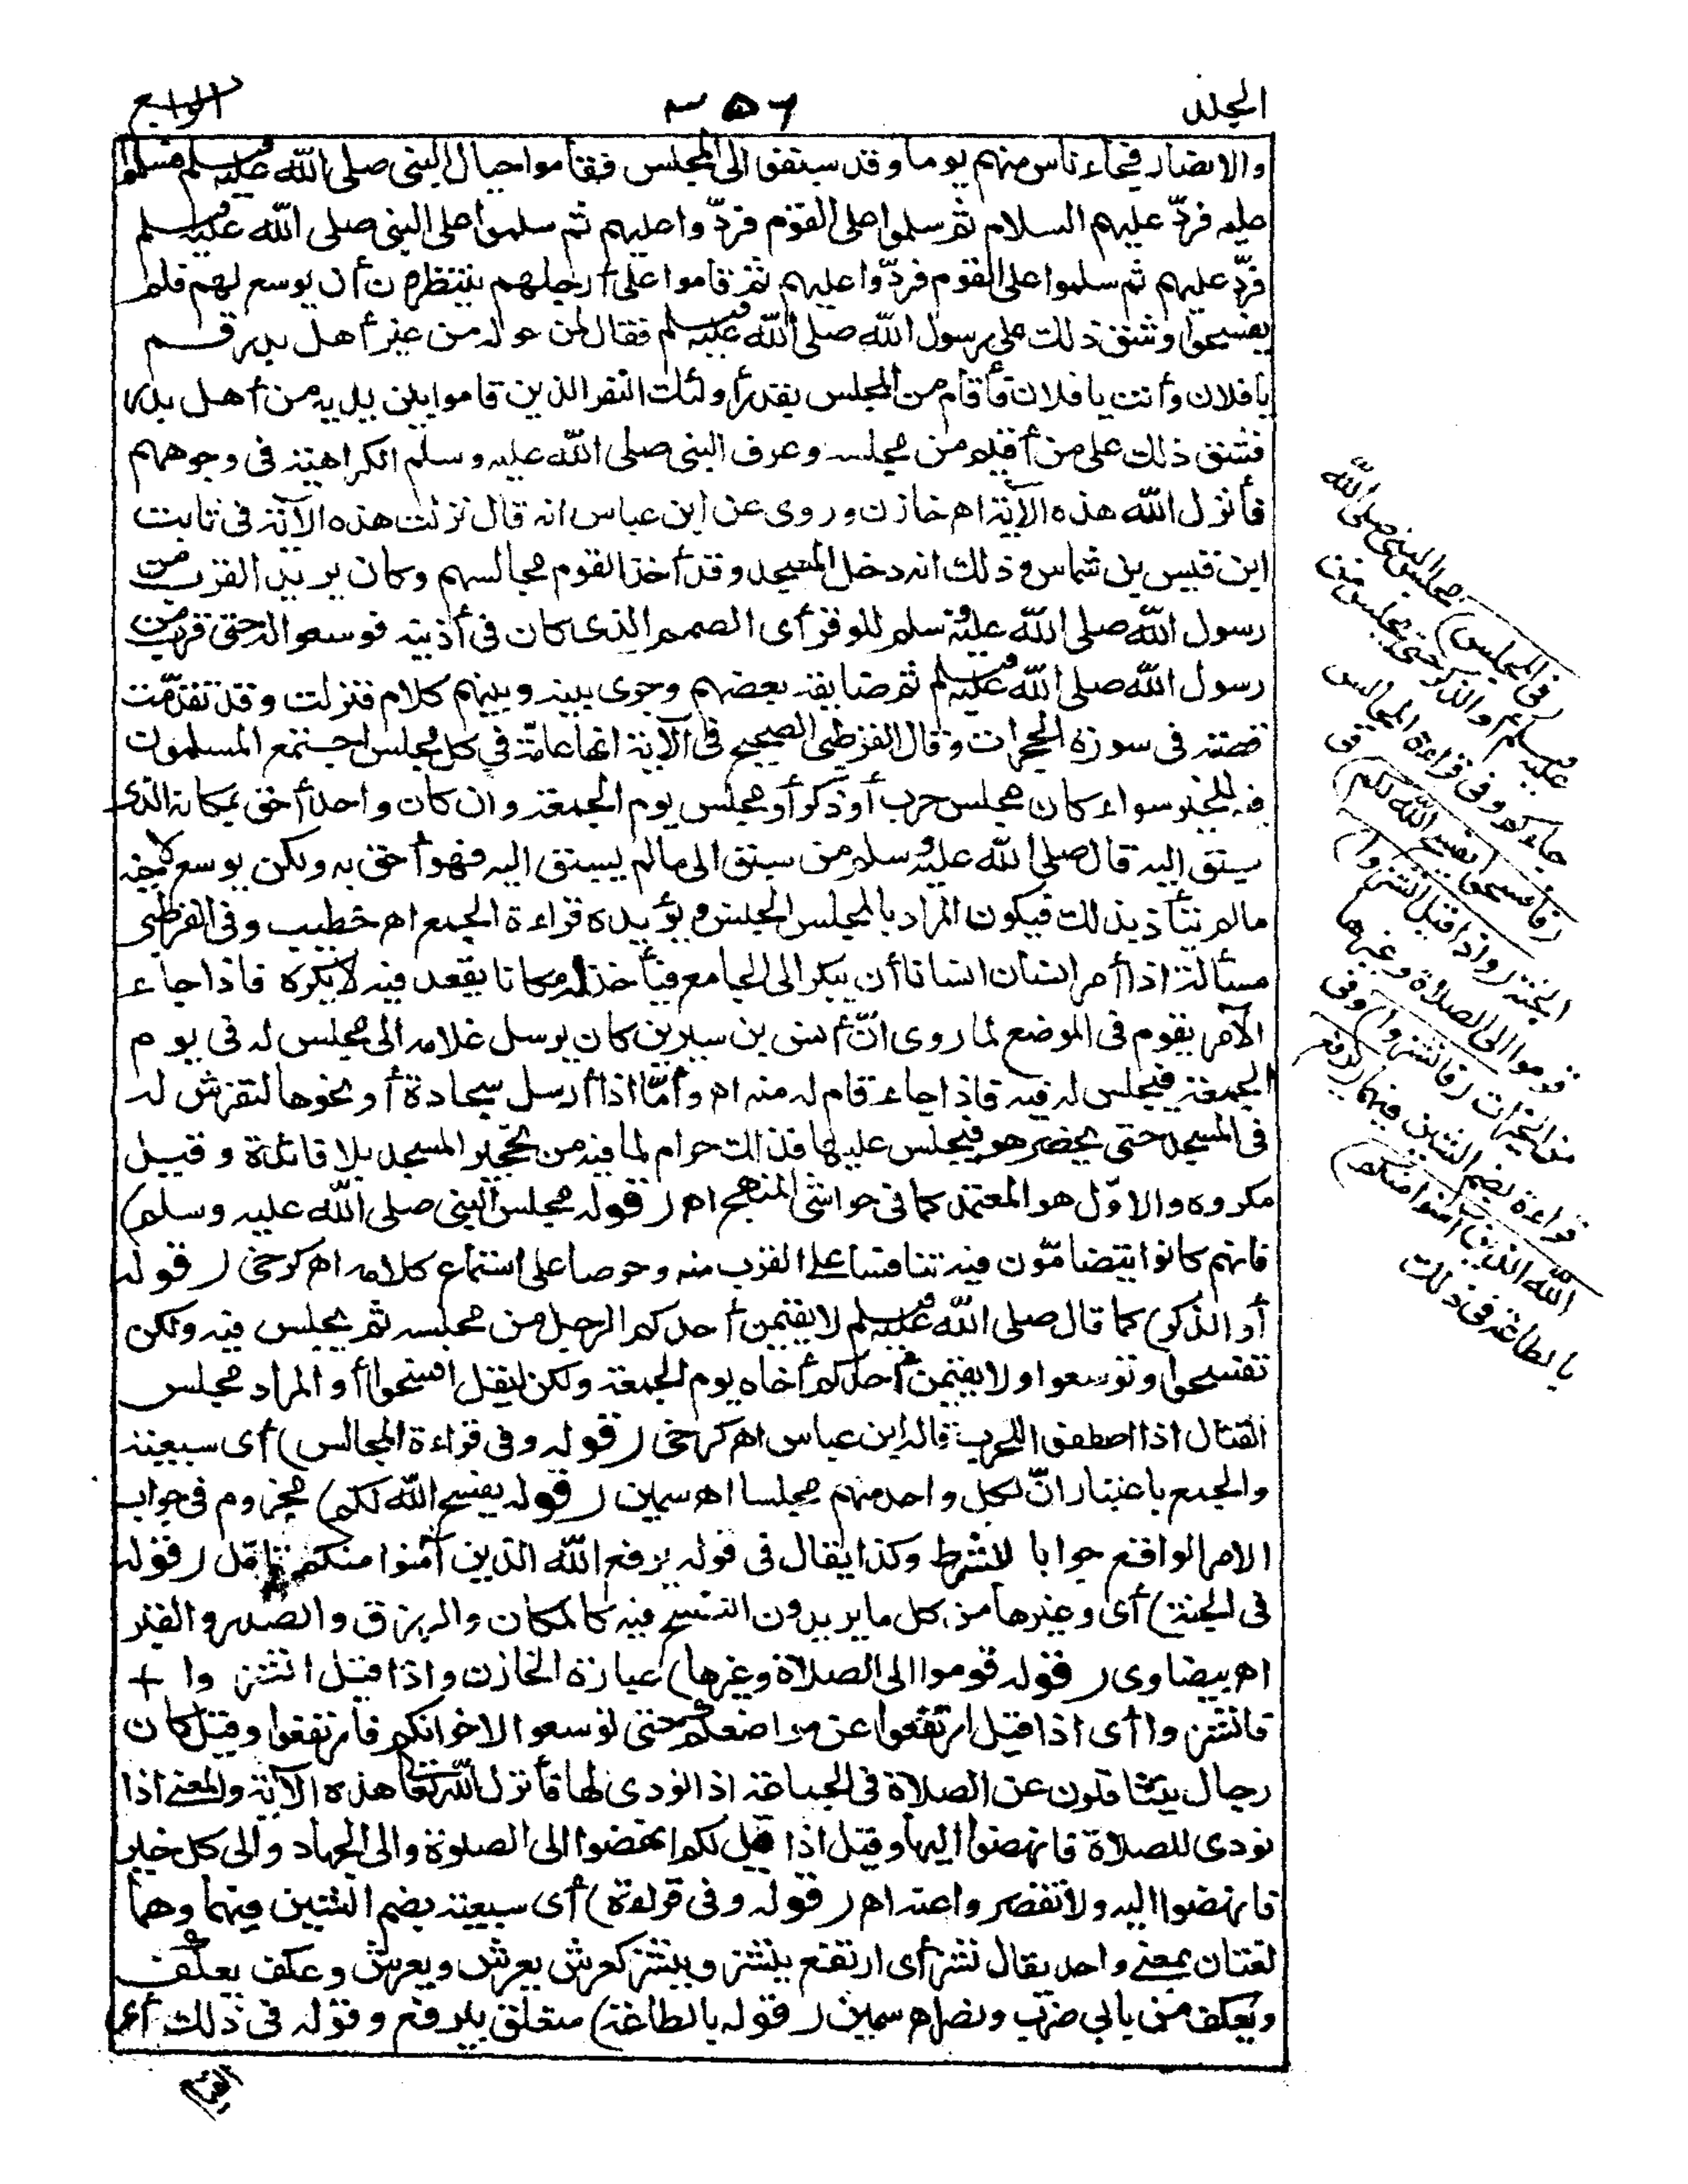 المجلد
٣٥٦
الرابع
والانصار فجاء ناس منهم يوما وقد سبقوا الى المجلس فقاموا حيال النبى صلى الله عليه وسلم فسلموا
عليه فردّ عليهم السلام ثم سلموا على القوم فردّوا عليهم ثم سلموا على النبى صلى الله عليه وسلم
فردّ عليهم ثم سلموا على القوم فردّوا عليهم ثم قاموا على أرجلهم ينتظرون أن يوسع لهم فلم
يفسحوا وشق ذلك على رسول الله صلى الله عليه وسلم فقال لمن حوله من غير أهل بدر قم
يا فلان وأنت يا فلان فأقام من المجلس بقدر أولئك النفر الذين قاموا بين يديه من أهل بدر
فشق ذلك على من أقيم من مجلسه وعرف النبى صلى الله عليه وسلم الكراهية فى وجوههم
فأنزل الله هذه الآية اه خازن وروى عن ابن عباس انه قال نزلت هذه الآية فى ثابت
ابن قيس بن شماس وذلك انه دخل المسجد وقد أخذ القوم مجالسهم وكان يريد القرب من
رسول الله صلى الله عليه وسلم للوقر أى الصمم الذى كان فى أذنيه فوسعوا له حتى قرب من
رسول الله صلى الله عليه وسلم ثم ضايقه بعضهم وجرى بينه وبينهم كلام فنزلت وقد تقدّمت
قصته فى سورة الحجرات وقال القرطبى الصحيح فى الآية انها عامّة فى كل مجلس اجتمع المسلمون
فيه للخير سواء كان مجلس حرب أو ذكر أو مجلس يوم الجمعة وان كان واحد أحق بمكانه الذى
سبق اليه قال صلى الله عليه وسلم من سبق الى ما لم يسبق اليه فهو أحق به ولكن يوسع لاخيه
ما لم يتأذ بذلك فيكون المراد بالمجلس الجنس ويؤيده قراءة الجمع اه خطيب وفى القرطبى
مسألة اذا أمر انسان انسانا أن يبكر الى الجامع فيأخذ له مكانا يقعد فيه لا يكره فاذا جاء
الآمر يقوم فى الموضع لما روى انّ أنس بن سيرين كان يرسل غلامه الى مجلس له فى يوم
الجمعة فيجلس له فيه فاذا جاء قام له منه اه وأمّا اذا أرسل سجادة أو نحوها لتفرش له
فى المسجد حتى يحضر هو فيجلس عليها فذلك حرام لما فيه من تحجير المسجد بلا فائدة وقيل
مكروه والاوّل هو المعتمد كما فى حواشى المنهج اه (قوله مجلس النبى صلى الله عليه وسلم)
فانهم كانوا يتضامّون فيه تنافسا على القرب منه وحرصا على استماع كلامه اه كرخى (قوله
أو الذكر) كما قال صلى الله عليه وسلم لا يقيمن أحدكم الرجل من مجلسه ثم يجلس فيه ولكن
تفسحوا وتوسعوا ولا يقيمن أحدكم أخاه يوم الجمعة ولكن ليقل افسحوا أو المراد مجلس
القتال اذا اصطفوا للحرب قاله ابن عباس اه كرخى (قوله وفى قراءة المجالس) أى سبعية
والجمع باعتبار انّ لكل واحد منهم مجلسا اه سمين (قوله يفسح الله لكم) مجزوم فى جواب
الامر الواقع جوابا للشرط وكذا يقال فى قوله يرفع الله الذين آمنوا منكم تأمّل (قوله
فى الجنة) أى وغيرها من كل ما يريدون التفسح فيه كالمكان والرزق والصدر والقبر
اه بيضاوى (قوله قوموا الى الصلاة وغيرها) عبارة الخازن واذا قيل انشزوا +
فانشزوا أى اذا قيل ارتفعوا عن مواضعكم حتى توسعوا لاخوانكم فارتفعوا وقيل كان
رجال يتثاقلون عن الصلاة فى الجماعة اذا نودى لها فأنزل الله تعالى هذه الآية والمعنى اذا
نودى للصلاة فانهضوا اليها وقيل اذا قيل لكم انهضوا الى الصلوة والى الجهاد والى كل خير
فانهضوا اليه ولا تقصروا عنه اه (قوله وفى قراءة) أى سبعية بضم الشين فيهما وهما
لغتان بمعنى واحد يقال نشز أى ارتفع ينشز وينشز كعرش يعرش ويعرش وعكف يعكف
ويعكف من بابى ضرب ونصر اه سمين (قوله بالطاعة) متعلق بيرفع وقوله فى ذلك أى
(فى المجلس) مجلس النبى صلى الله
عليه وسلم والذكر حتى يجلس من
جاءكم وفى قراءة المجالس
(فافسحوا يفسح الله لكم) فى
الجنة (واذا قيل انشزوا)
قوموا الى الصلاة وغيرها
من الخيرات (فانشزوا) وفى
قراءة بضم الشين فيهما (يرفع
الله الذين آمنوا منكم)
بالطاعة فى ذلك